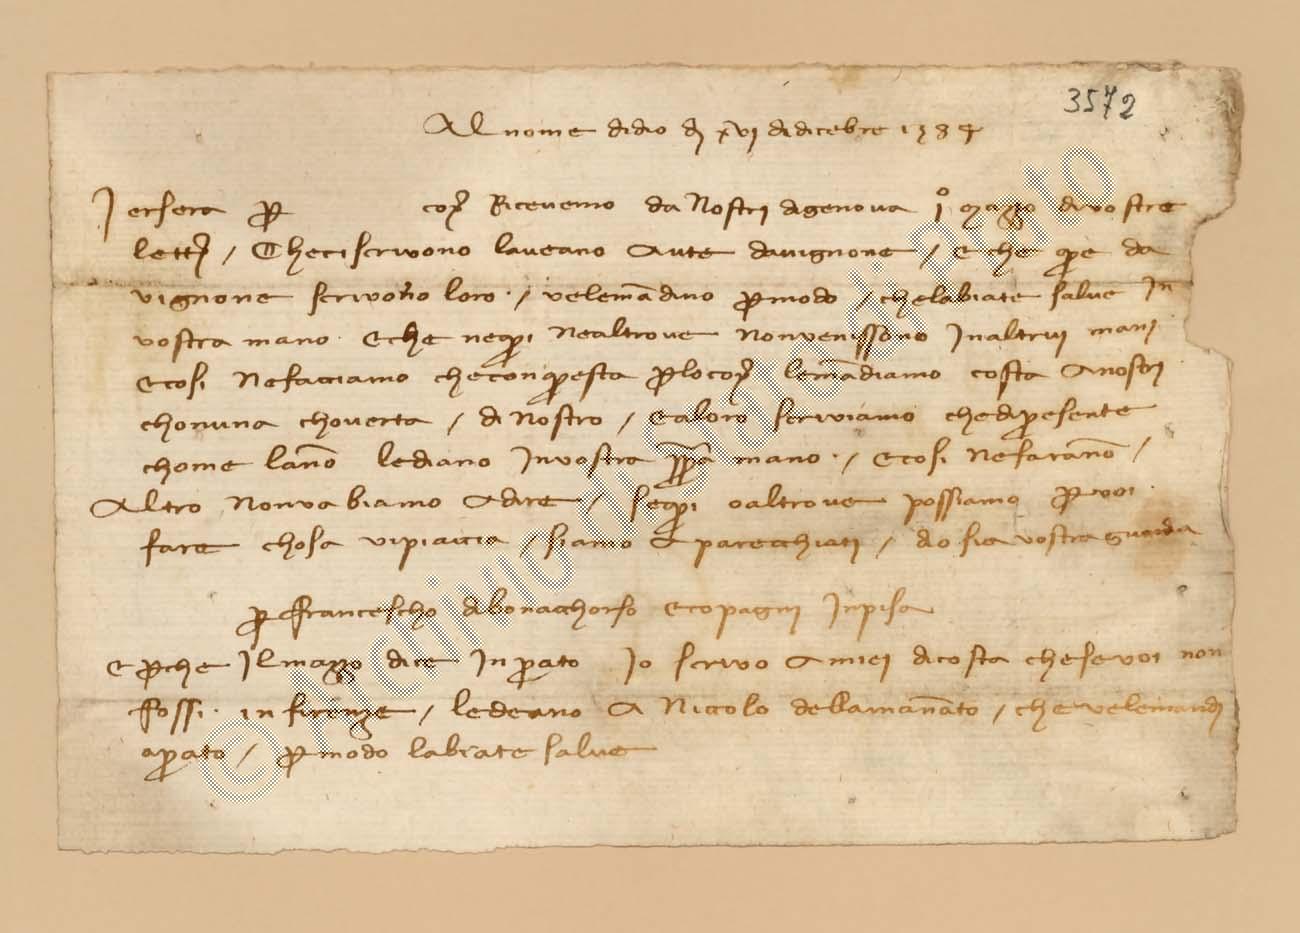 3572
Al nome didio dj xvi didicebre 1384
Jersera p coꝛ Ricevemo da Nostri digenova jº mazzo divostre
lettꝭ / Checiscrivono laveano Aute davignone / Eche q̃e da
vignone scrivono loro / velemãdino pmodo / chelabiate salve In
vostra mano Eche neqi Nealtrove nonvenissono Inaltrui mani
Ecosi Nefacciamo checonqesta plocoꝛ lemãdiamo costa Anostri
chonuna choverta / di Nostro / Ealoro scriviamo chedipesente
chome lanõ lediano Invostra ppa mano / Ecosi Nefaranõ /
Altro nonvabiamo Adire / seqi oaltrove possiamo p voi
fare chosa vipiaccia / siamo Aparecchiati / dio sia vostra guardia
p Francescho dibonacchorso Ecopagni Inpisa
Epche Ilmazzo dice Inprato Jo scrivo Amiei dicosta chesevoi non
Fossi in firenze / ledeano A Niccolo dellamanato / chevelemandj
aprato / pmodo labiate salve
© Archivio di Stato di Prato